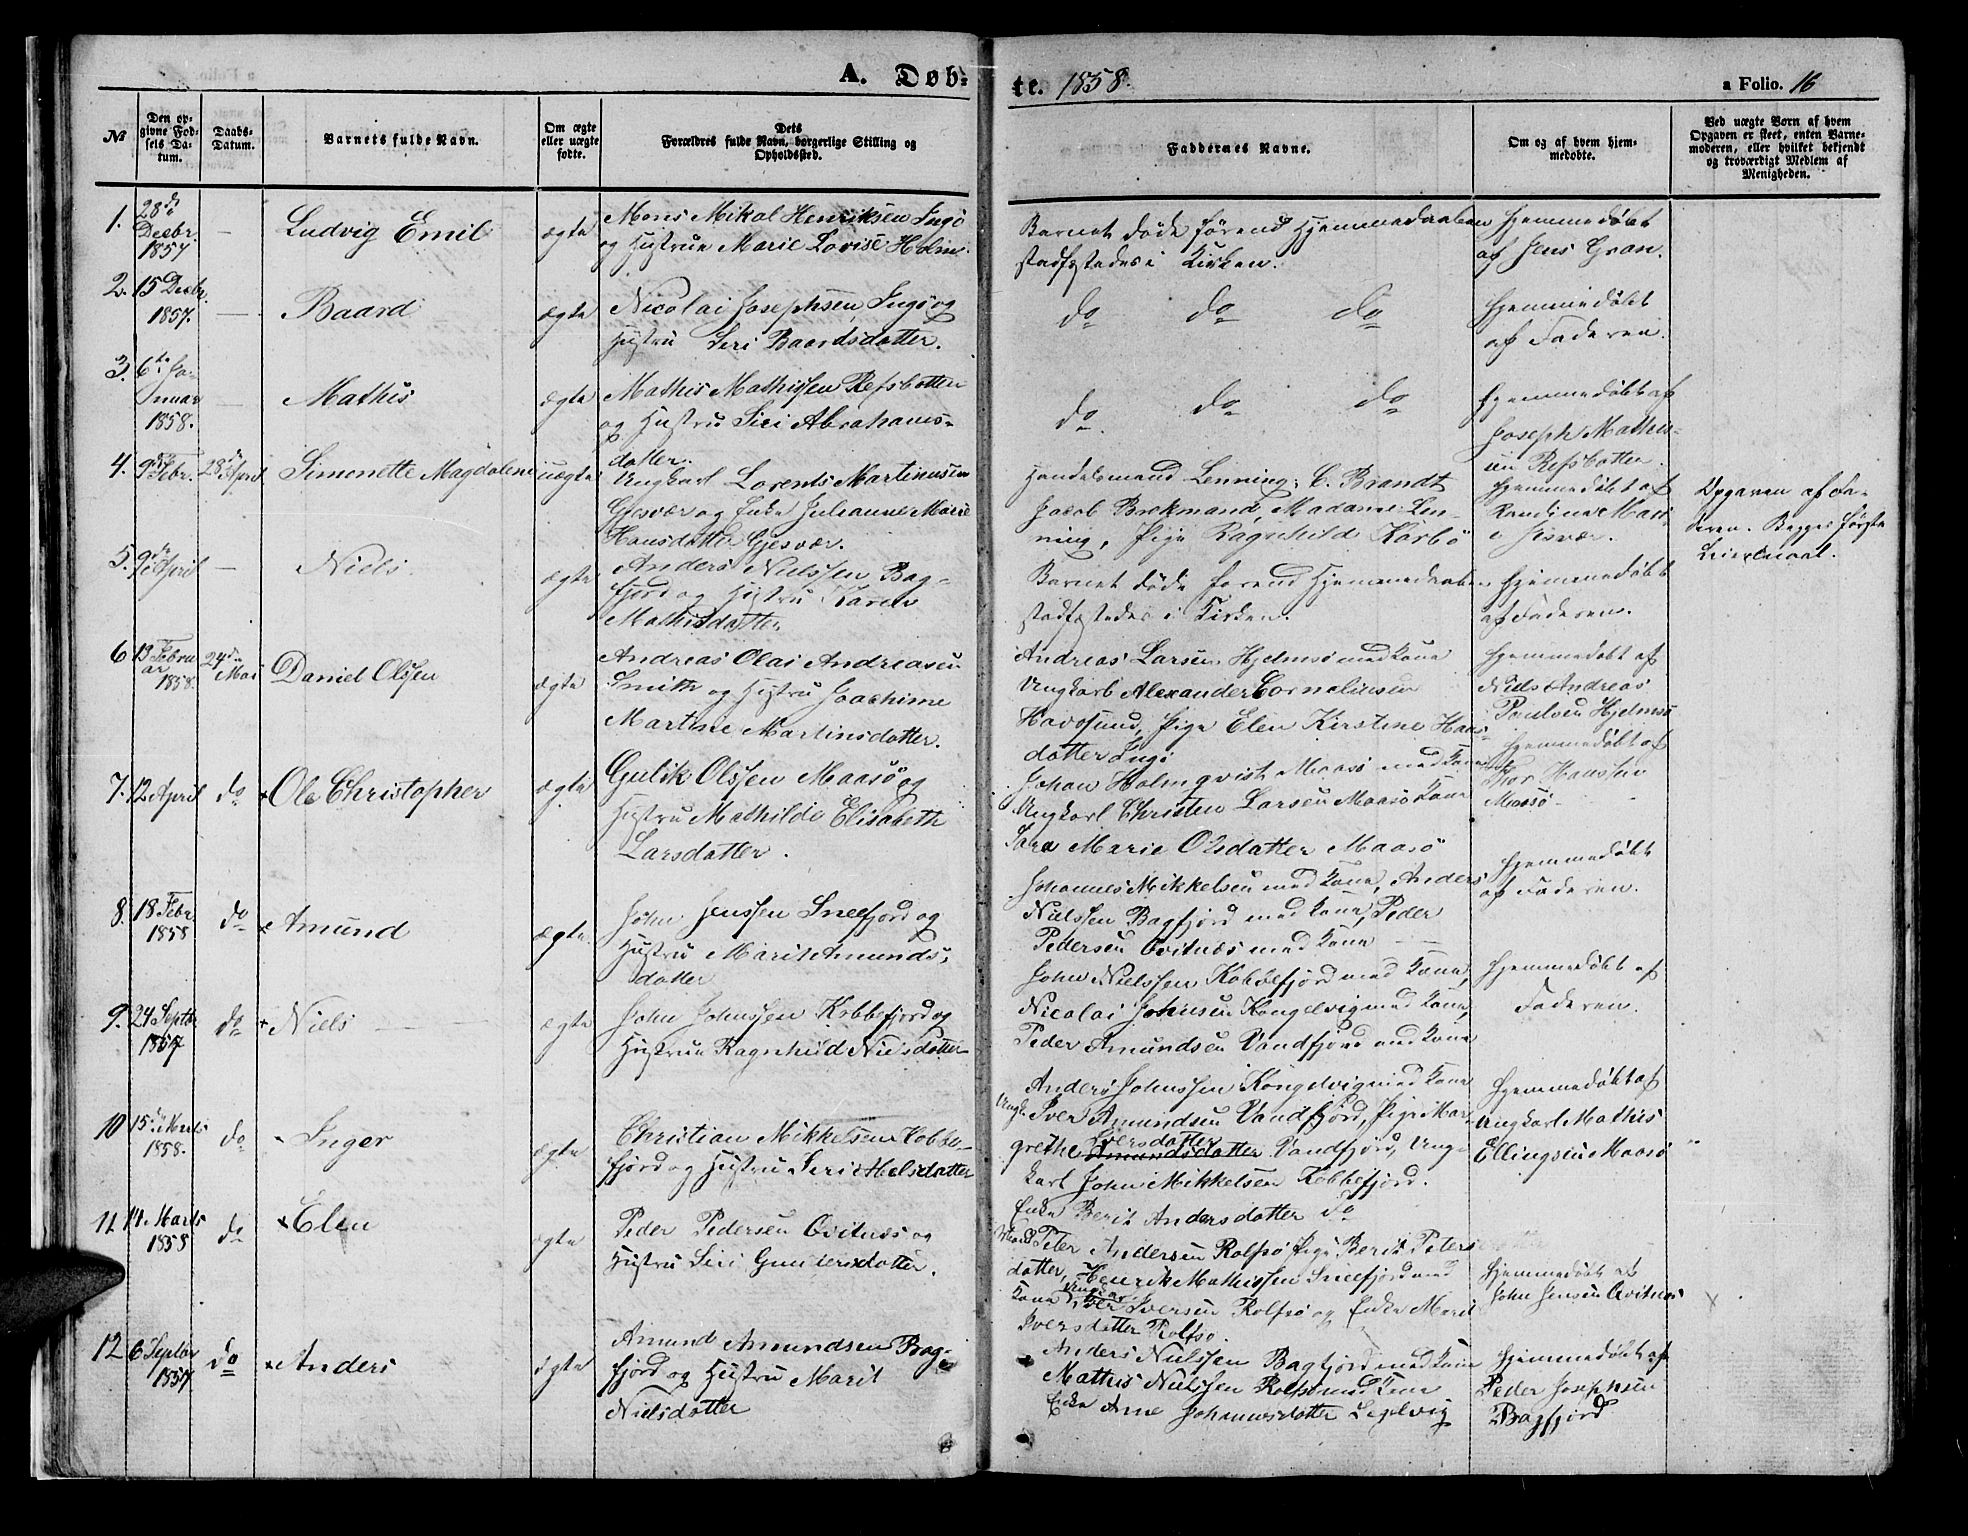 A. Døb-
te. 1858.
a Folio. 16
№
Den op-
givne Fød-
sels Da-
tum.
Daabs-
Datum.
Barnets fulde Navn.
Om ægte
eller uægte
fødte.
Dets
Forældres fulde Navn, borgerlige Stilling og
Opholdssted.
Faddernes Navne.
Om og af hvem hjem-
medøbte.
Ved uægte Børn af hvem
Opgaven er skeet, enten Barne-
moderen, eller hvilket bekjendt
og troværdigt Medlem af
Menigheden.
1.
28de
Decbr.
1857
—
Ludvig Emil
ægte
Mons Mikal Henriksen Ingö
og Hustrue Marie Lovise Holm.
Barnet døde førend Hjemmedaaben
stadfæstedes i Kirken.
Hjemmedøbt
af Jens Gran.
2.
15 Decbr.
1857.
—
Baard
ægte
Nicolai Josephsen, Ingö og
Hustru Siri Baardsdatter.
do do do
Hjemmedøbt
af Faderen.
3.
6te Ja-
nuar
1858.
—
Mathis
ægte
Mathis Mathissen Refsbotten
og Hustru Siri Abrahams-
datter.
do. do do
Hjemmedøbt af
Joseph Mathis-
sen Refsbotten.
4.
9de Febr.
28de April
Simonette Magdalene
uægte
Ungkarl Lorents Martinussen
Gjesvær og Enke Julianne Marie
Hansdatter Gjesvær.
Handelsmand Lenning, C. Brandt
Jacob Brekmand, Madame Len-
ning, Pige Ragnhild Karbö
Hjemmedøbt af
Randine Mari
i Gjesvær.
Opgaven af Fa-
deren. Begges første
Leiermaal.
5.
9de April
—
Niels
ægte
Anders Nielssen Bag-
fjord og Hustru Karen
Mathisdatter
Barnet døde førend Hjemmedaaben
stadfæstedes i Kirken.
Hjemmedøbt
af Faderen.
6
13 Febru
ar
1858.
24de Mai
Daniel Olssen
ægte
Andreas Olai Andreasen
Smith og Hustru Joachime
Martine Martinsdatter.
Andreas Larsen Hjelmsö med Kone
Ungkarl Alexander Cornelius­sen
Havøsund, Pige Elen Kirstine Hans-
datter Ingö
Hjemmedøbt af
Niels Andreas
Paulsen Hjelmsö
7.
12 April
do
+ Ole Christopher
ægte
Gulik Olssen Maasö og
Hustru Mathilde Elisabeth
Larsdatter.
Johan Holmqvist Maasö med Kone
Ungkarl Christen Larsen Maasö Kone
Sara Marie Olsdatter Maasö
Hjemmedøbt af
Hanssen
Maasö
8.
18 Febr.
1858
do
+ Amund
ægte
John Jenssen Sneefjord og
Hustru Marit Amunds-
datter
Johannes Mikkelsen med Kone, Anders
Nielssen Bagfjord med Kone, Peder
Pedersen Qvitnæs med Kone
Hjemmedøbt
af Faderen.
9.
24 Septbr
1857
do
+ Niels
ægte
John Johnssen Kobbefjord og
Hustrue Ragnhild Nielsdatter
John Nielssen Kobbefjord med Kone,
Nicolai Johnsen Kongelvig med Kone,
Peder Amundsen Vandfjord med Kone
Hjemmedøbt af
Faderen.
10
15de Marts
1858.
do
Inger
ægte
Christian Mikkelsen Kobbe-
fjord og Hustru Siri Nielsdatter
Anders Johnssen Kongelvig med Kone
Ungk. Iver Amundsen Vandfjord, Pige Mar-
grethe Iversdatter Amundsdatter Vandfjord, Ung-
karl John Mikkelsen Kobbefjord.
Enke Berit Andersdatter do
Hjemmedøbt af
Ungkarl Mathis
Ellingsen Maasö
11.
14 Marts
1858
do
+ Elen
ægte
Peder Pedersen Qvitnæs og
Hustru Siri Gundersdatter.
Peter Andersen Rolfsö, Pige Berit Peters
datter, Henrik Mathissen Sneefjord med
Kone, Ungkarl Iver Iversen Rolfsö og Enke Marit
Iversdatter Rolfsö.
Hjemmedøbt af
John Jensen Qvitnæs
12
6 Septbr
1857
do
+ Anders
ægte
Amund Amundsen Bag-
fjord og Hustru Marit
Nielsdatter
Anders Nielssen Bagfjord med Kone
Mathis Nielssen Rolfsö med Kone
Enke Ane Johannesdatter
Hjemmedøbt af
Peder Josephsen
Bagfjord